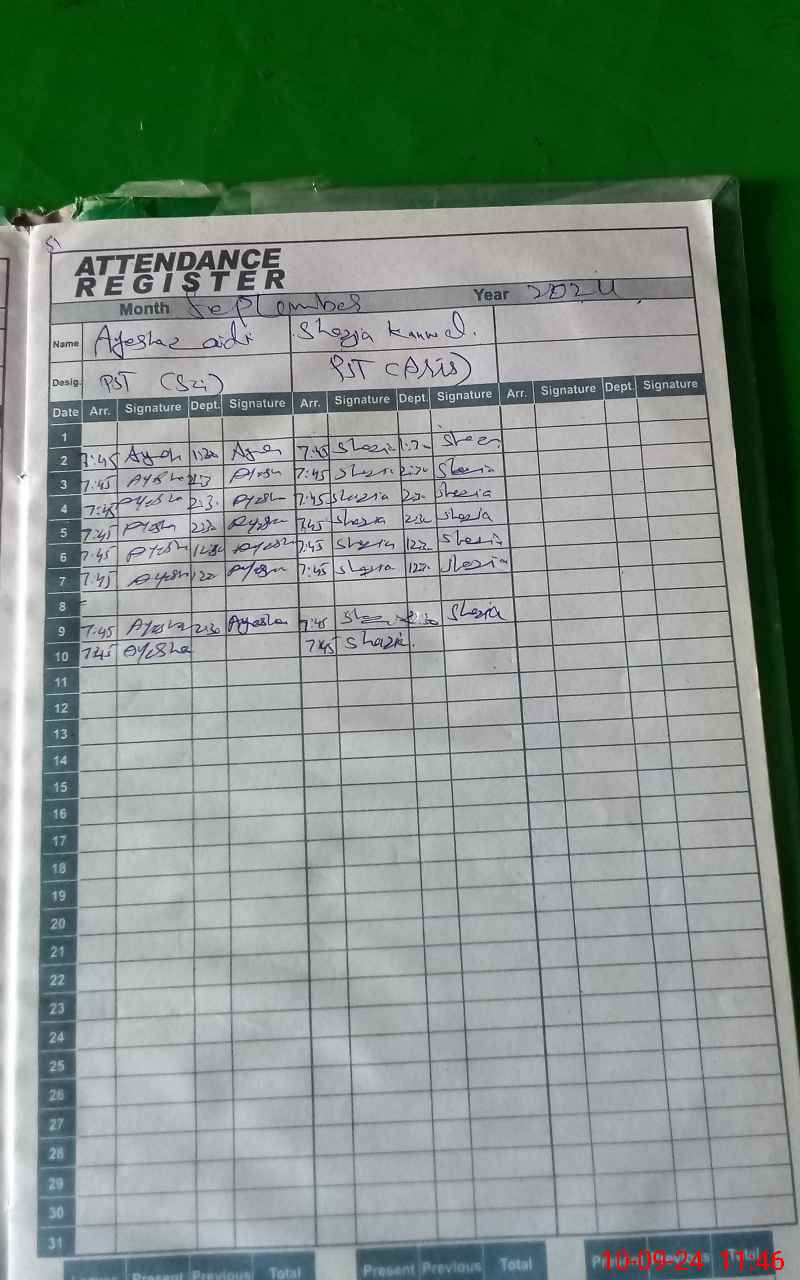 51
ATTENDANCE
REGISTER
Month September Year 2024
Name Shazia Kanwal.
Desig. PST (Sci) PST (Arts)
Date Arr. Signature Dept. Signature Arr. Signature Dept. Signature Arr. Signature Dept. Signature
1
2 7:45 7:45 Shazia
3 7:45 Ayesha Ayesha 7:45 Shazia Shazia
4 7:45 Ayesha Ayesha 7:45 Shazia Shazia
5 7:45 Ayesha Ayesha 7:45 Shazia Shazia
6 7:45 Ayesha Ayesha 7:45 Shazia Shazia
7 7:45 Ayesha Ayesha 7:45 Shazia Shazia
8
9 7:45 Ayesha 2:30 Ayesha 7:45 Shazia
10 7:45 Ayesha 7:45 Shazia.
11
12
13
14
15
16
17
18
19
20
21
22
23
24
25
26
27
28
29
30
31
Present Previous Total Present Previous Total Total
10-09-24 11:46